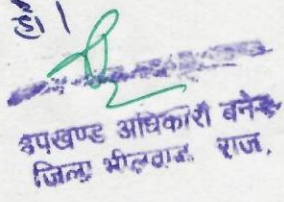 है।
उपखण्ड अधिकारी बनेड़ा
जिला भीलवाड़ा राज.